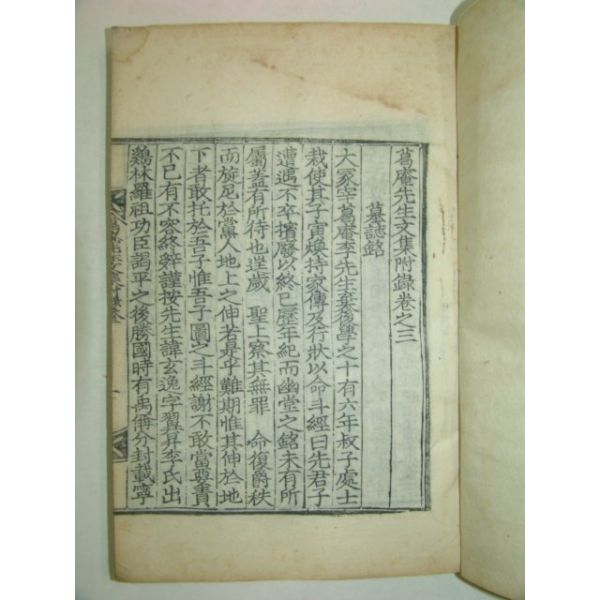 葛庵先生文集附錄卷之三
墓誌銘
大冢宰葛庵李先生棄後學之十有六年叔子處士
栽使其子寅煥持家傳及行狀以命斗經曰先君子
遭遇不卒擯廢以終已歷年紀而幽堂之銘未有所
屬蓋有所待也迬歲 聖上察其無罪 命復爵秩
而旋尼於黨人地上之伸者是乎難期惟其伸於地
下者敢托於吾子惟吾子圖之斗經謝不敢當要責
不已有不容終辭謹按先生諱玄逸字翼昇李氏出
鷄林羅祖功臣謁平之後勝國時有禹偁分封載寧